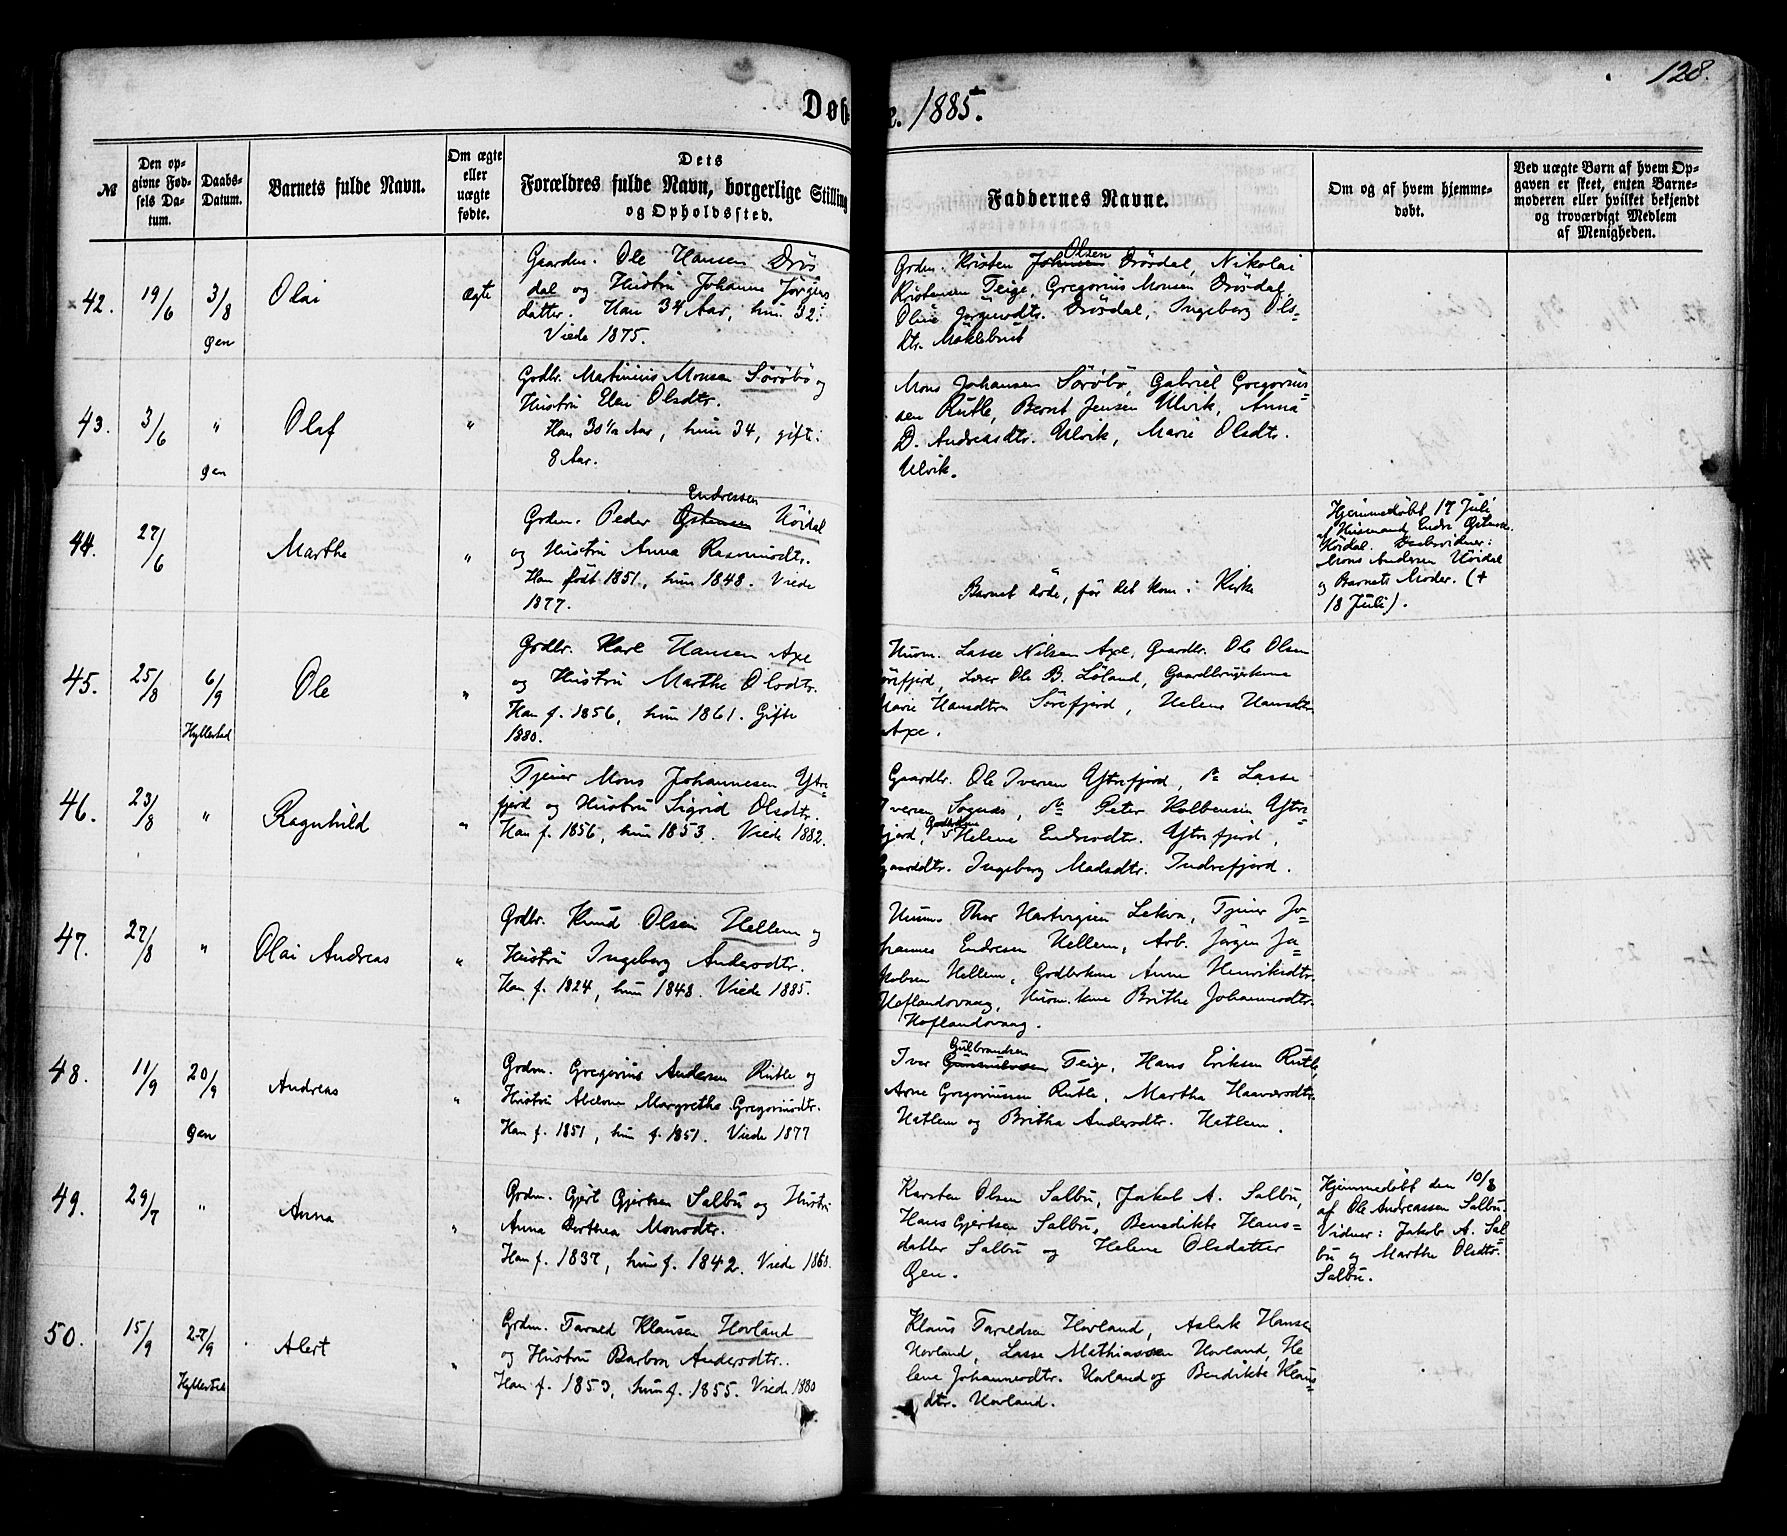 128.
Døbte. 1885.
№
Den op-
givne Fød-
sels Da-
tum.
Daabs-
Datum.
Barnets fulde Navn.
Om ægte
eller
uægte
fødte.
Dets
Forældres fulde Navn, borgerlige Stilling
og Opholdssted.
Faddernes Navne.
Om og af hvem hjemme-
døbt.
Ved uægte Børn af hvem Op-
gaven er skeet, enten Barne-
moderen eller hvilket bekjendt
og troværdigt Medlem
af Menigheden.
42. 19/6 3/8 Øen
Olai
Ægte
Gaardm. Ole Hansen Drös
dal og Hustru Johanne Jörgens
datter. Han 34 Aar, hun 32.
Viede 1875.
Grdm. Kristen Johnsen Olsen Drösdal, Nikolai
Kristensen Teige, Gregorius Monsen Drösdal,
Oline Jörgensdtr. Drösdal, Ingeborg Ols=
dtr. Möklebust
43. 3/6 " Øen
Olaf
"
Grdbr. Martinius Monsen Söröbö og
Hustru Elen Olsdtr.
Han 30½ Aar, hun 34, gift:
8 Aar.
Mons Johansen Söröbö, Gabriel Gregorius=
sen Rutle, Bernt Jensen Ulvik, Anna
D. Andreasdtr. Ulvik, Marie Olsdtr.
Ulvik.
44. 27/6
Marthe
"
Endressen
Grdm. Peder Østensen Höidal
og Hustru Anna Rasmusdtr.
Han født 1851, hun 1848. Viede
1877.
Barnet døde, før det kom i Kirke
Hjemmedøbt 17 Juli
af Husmand Endre
Höidal. Daabsvidner:
Mons Andersen Höidal
og Barnets Moder. (+
18 Juli).
45. 25/8 6/9 Hyllestad
Ole
"
Grdbr. Karl Hansen Axe
og Hustru Marthe Olsdtr.
Han f. 1856, hun 1861. Gifte
1880.
Husm. Lasse Nilsen Axe, Gaardbr. Ole Olsen
Sörefjord, Lærer Ole B. Löland, Gaardbrugerkone
Marie Hansdtr. Sörefjord, Helene Hansdtr
Axe.
46. 23/8 "
Ragnhild
"
Tjener Mons Johannesen Ytre=
fjord og Hustru Sigrid Olsdtr.
Han f. 1856, hun 1853. Viede 1882.
Gaardbr. Ole Iversen Ytrefjord, do Lasse
Iversen Sognes, do Peter Kolbensen Ytre
fjord, Helene Endresdtr. Ytrefjord,
Gaarddtr. Ingeborg Madsdtr. Indrefjord.
47. 27/8 "
Olai Andreas
"
Grdbr. Knud Olsen Hellem og
Hustru Ingeborg Andersdtr.
Han f. 1824, hun 1848. Viede 1885.
Husm. Thor Hartvigsen Lekva, Tjener Jo=
hannes Endresen Hellem, Arb. Jörgen Ja=
kobsen Hellem, Grdbrkone Anne Henriksdtr.
Hoflandsvaag, Husm.kone Brithe Johannesdtr.
Hoflandsvaag.
48. 11/9 20/9 Øen
Andreas
"
Grdm. Gregorius Andersen Rutle og
Hustru Abelone Margrethe Gregoriusdtr.
Han f. 1851, hun f. 1851. Viede 1877
Gulbrandsen
Iver Teige, Hans Eriksen Rutle,
Arne Gregoriussen Rutle, Martha Haaversdtr.
Hatlem og Britha Andersdtr. Hatlem.
49. 29/7 "
Anna
"
Grdm. Gjert Gjertsen Salbu og Hustru
Anna Dorthea Monsdtr.
Han f. 1837, hun f. 1842. Viede 1860.
Karsten Olsen Salbu, Jakob A. Salbu,
Hans Gjertsen Salbu, Benedikte Hans=
datter Salbu og Helene Olsdatter
Øen.
Hjemmedøbt den 10/8
af Ole Andreassen Salbu.
Vidner: Jakob A. Sal=
bu og Marthe Olsdtr.
Salbu.
50. 15/9 27/9 Hyllestad
Alert
"
Grdm. Tarald Klausen Hovland
og Hustru Barbra Andersdtr.
Han f. 1853, hun f. 1855. Viede 1880
Klaus Taraldsen Hovland, Aslak Hansen
Hovland, Lasse Mathiassen Hovland, He
lene Johannesdtr. Hovland og Bendikte Klaus=
dtr. Hovland.